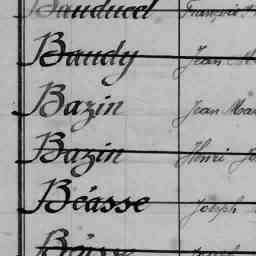 Bauduccel François
Baudy Jean M
Bazin Jean Mar
Bazin Henri Jo
Béasse Joseph